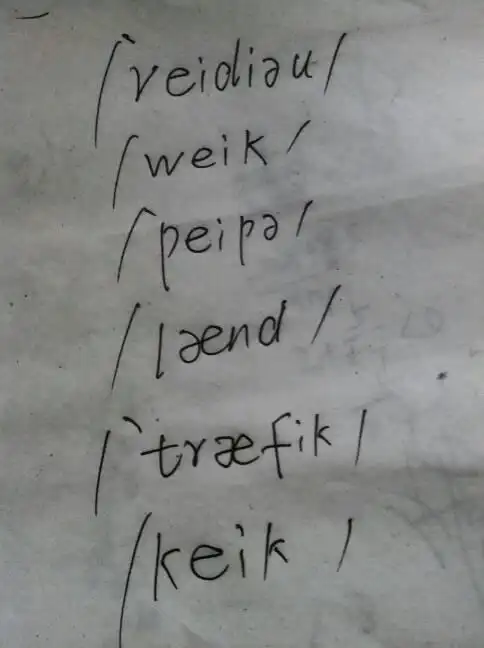 /ˋreidiəu/
/weik/
/ˋpeipə/
/lænd/
/ˋtræfik/
/keik/